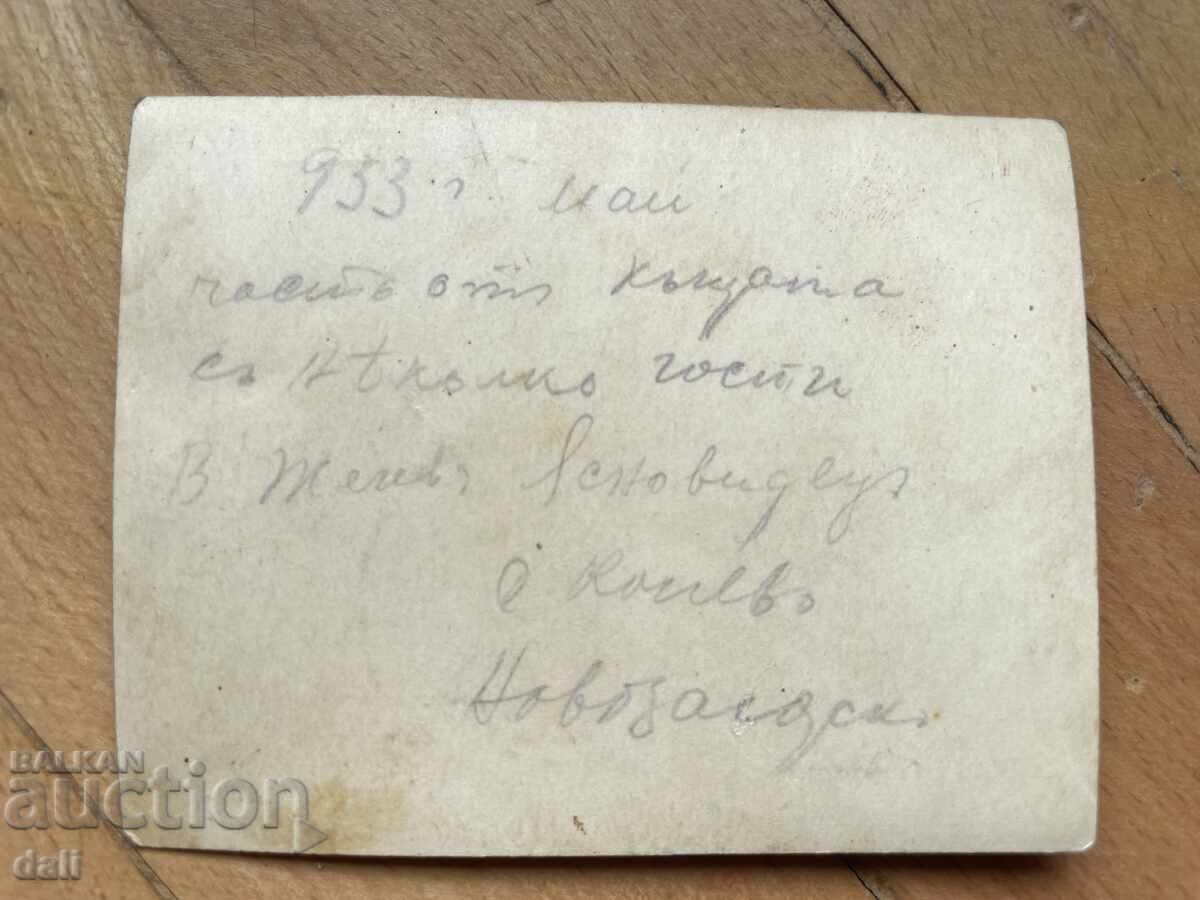 953 г. май
часть отъ къщата
съ нѣколко гости
В Женев. Ясновидецъ
с Конѐвъ
Новозагорск.
BALKAN
auction
dali